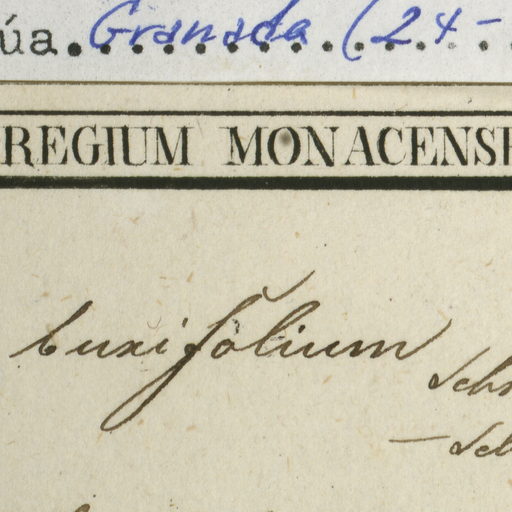 úa. Granada (24-
REGIUM MONACENSE
buxifolium
Sch
- Sch